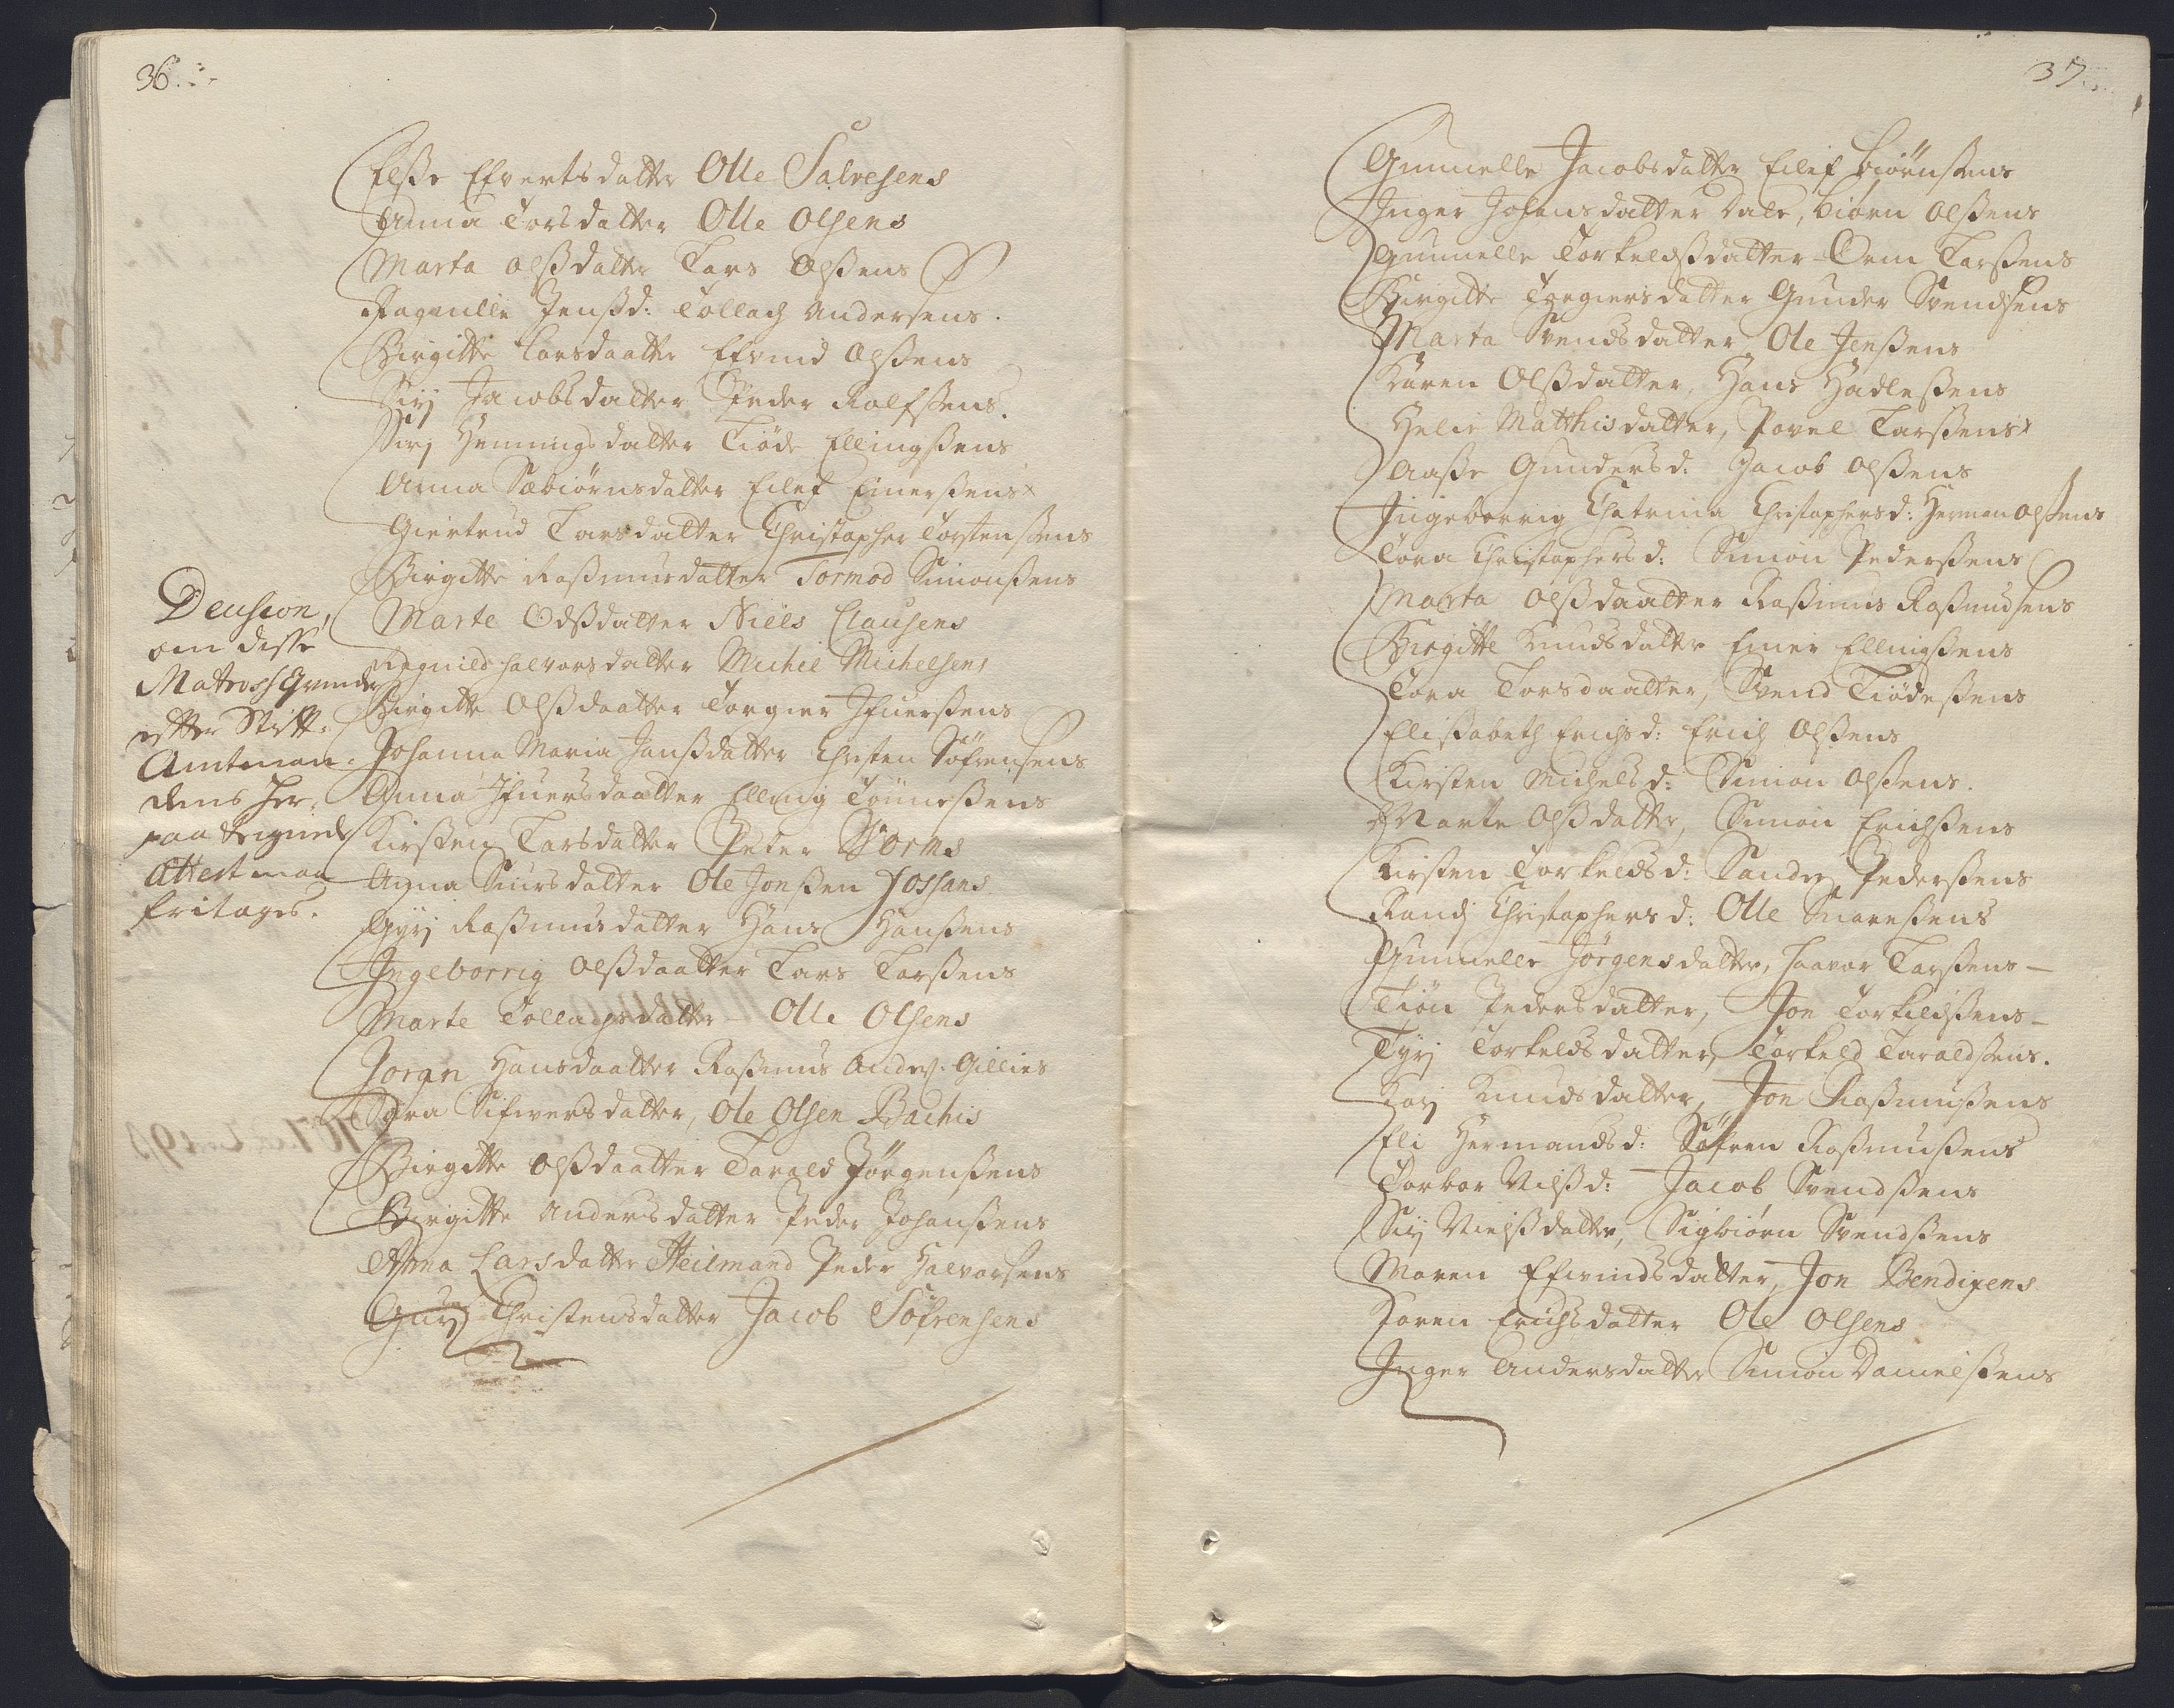 36.
Elsße Efvertsdatter Olle Salvesens
Anna Torsdatter Olle Olsens
Marta olßdatter Lars Olßens
Ragnille Jenßd: Tollach Andersens.
Birgitte Larsdaatter Efvind Olßens
Sirj Jacobsdatter Peder Rolfßens.
Sirj Hemmingsdatter Tiöde Ellingßens
Anna Sæbiörnsdatter Eilef Einerßens
Giertrud Larsdatter Christopher Torstenßens
Birgitte Raßmusdatter Tormod Simonßens
Marte Odßdatter Niels Clausens
Ragnild Halvorsdatter Michel Michelsens
Birgitte Olßdaatter Torgier Ifuerßens
Johanna Maria Janßdatter Christen Söfrensens
Anna Ifuersdaatter Elling Tönneßens
Kirsten Larsdatter Peter Worms
Anna Siursdatter Ole Jonßen Fossans
Gyrj Raßmusdatter Hans Hanßens
Ingeborrig Olßdaatter Lars Larßens
Marte Tollachsdatter Olle Olsens
Joran Hansdaatter Raßmus Anders. Gillies
Tora Sifversdatter, Ole Olsen Bachis
Birgitte Olßdaatter Tarald Jörgenßens
Birgitte Andersdatter Peder Johanßens
Anna Larsdatter Heilmand Peder Halvorsens
Gurj Christensdatter Jacob Söfrensens
Decision,
om disse
Matross qvinder
efter Stift-
Amtman-
dens her-
paa tegned
Attest maa
fritages.
37.
Gunnelle Jacobsdatter Eilef Biörnßens
Inger Johansdatter Dale, Biörn Olßens
Gunnelle Torkeldßdatter Orm Larßens
Birgitte Torgiersdatter Gunder Svendsens
Marta Svendsdatter, Ole Jenßens
Karen Olßdatter, Hans Hadleßens
Helie Matthisdatter, Povel Larßens
Aaße Gundersd: Jacob Olßens
Ingeborrig Chatrina Christophersd: Herman Olßens
Tora Christophersd: Simon Pederßens
Marta Olßdaatter Raßmus Raßmusßens
Birgitte Knudsdatter Einer Ellingßens
Tora Torsdaatter, Svend Tiödeßens
Elisabeth Erichsd: Erich Olßens
Kirsten Michelsd: Simon Olßens.
Marte Olßdatter, Simon Erichßens
Kirsten Torkeldsd: Sander Pederßens
Randj Christophersd: Olle Snareßens
Gunnelle Jörgensdatter, Haavor Larßens
Siön Pedersdatter, Jon Torkildßens
Tyrj Torkeldsdatter, Torkeld Taraldßens.
Karj Knudsdatter, Jon Raßmusßens
Eli Hermandsd: Söfren Raßmusßens
Torbor Nilßd: Jacob Svendßens
Sirj Nielßdatter, Sigbiörn Svendßens
Maren Efvindsdatter, Jon Bendixens
Karen Erichsdatter Ole Olsens
Inger Andersdatter Simon Danielßens